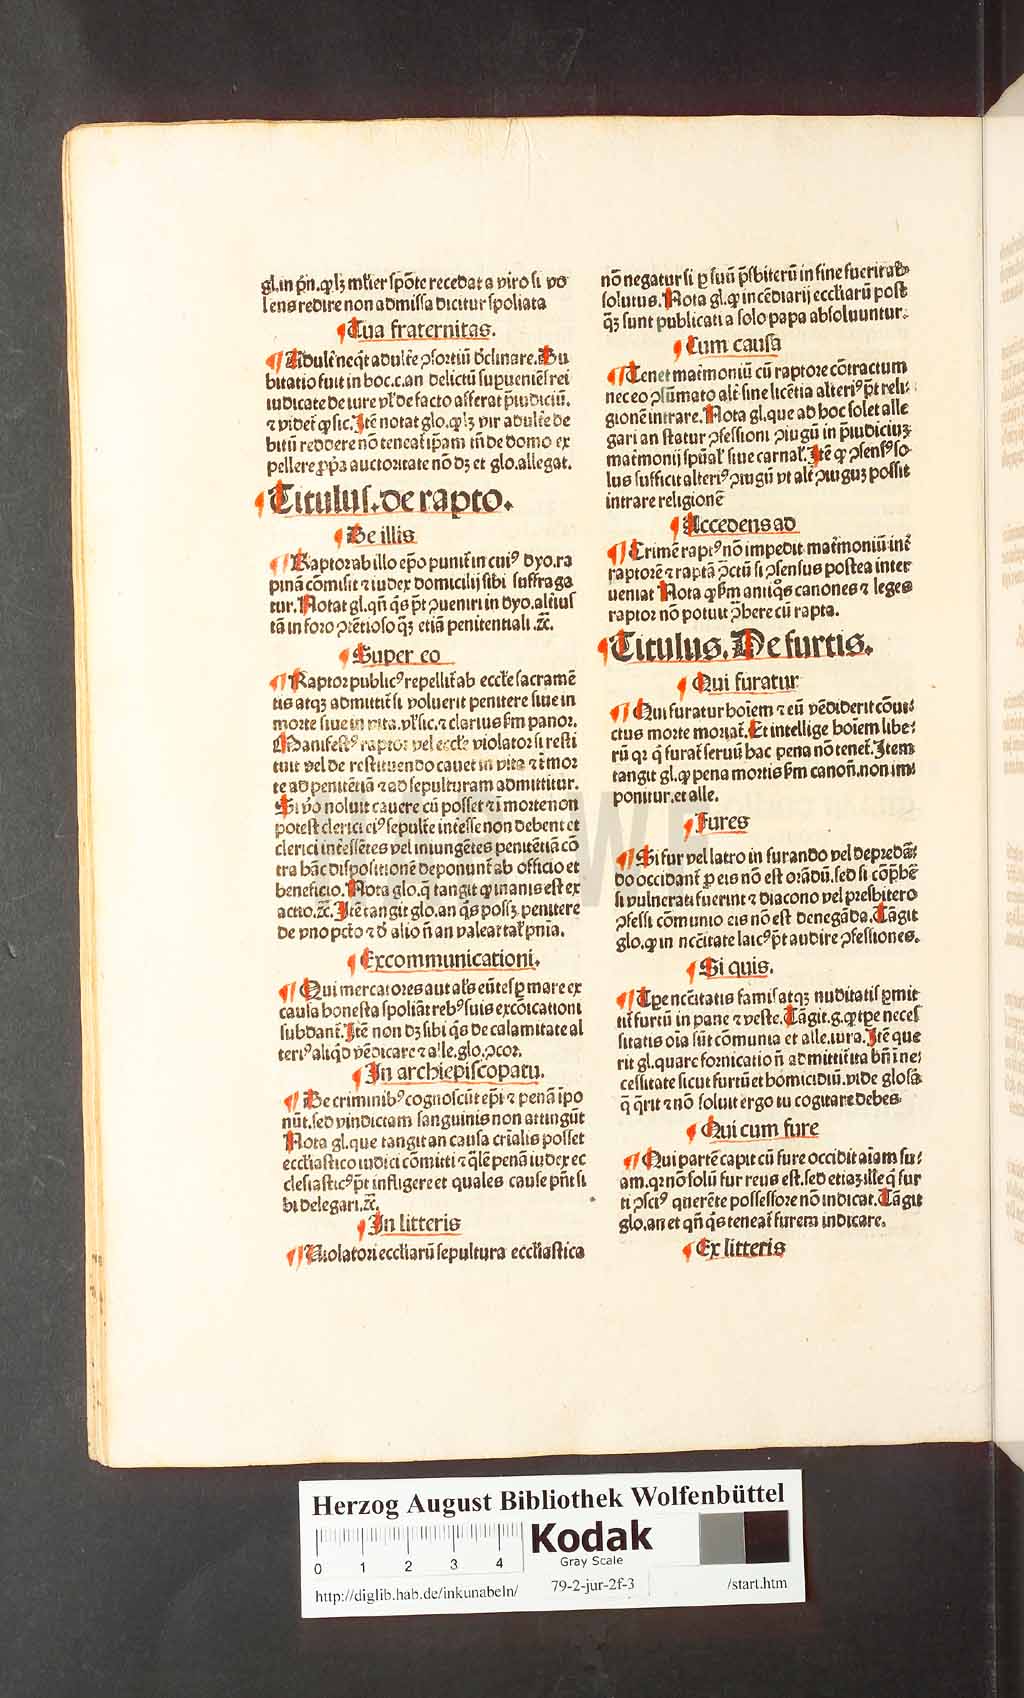 gl.in pͥn.qꝫ lꝫ mr̃ier spõte recedat a viro si vo
lens redire non admissa dicitur spoliata
¶Tua fraternitas.
¶Adulẽ neq̃t adulẽ ꝯsortiũ ꝺclinare. Du
bitatio fuit in hoc.c.an delictũ supueniẽs rei
iudicate de iure vl̃ de facto afferat p̃iudiciũ.
⁊ videt̃ ꝙ sic. Itẽ notat glo.ꝙ lꝫ vir adulẽ de
bitũ reddere nõ teneat̃ ip̃am tñ de domo ex
pellere p̱p̃a auctoritate nõ dꝫ et glo.allegat.
¶Titulus.de rapto.
¶De illis
¶Raptor ab illo ep̃o punit̃ in cuiꝰ dyo.ra
pinã cõmisit ⁊ iudex domicilij sibi suffraga
tur. Notat gl.qñ q̃s p̃t ꝯueniri in dyo.alteriꝰ
tã in foro ꝯtẽtioso q̃ꝫ etiã penitentiali.⁊c̃.
¶Super eo
¶Raptor publicꝰ repellit̃ ab eccl̃e sacramẽ
tis atqꝫ admittit̃ si voluerit penitere siue in
morte siue in vita.vl̃ sic.⁊ clarius s̃m panor.
Manifestꝰ raptor vel eccl̃e violator si resti
tuit vel de restituendo cauet in vita ⁊ ĩ mor
te ad penitẽtiã ⁊ ad sepulturam admittitur.
Si ṽo noluit cauere cũ posset ⁊ ĩ morte non
potest clerici eiꝰ sepulẽ inẽsse non debent et
clerici inẽssẽtes vel iniungẽtes penitẽtiã cõ
tra hãc dispositionẽ deponunt̃ ab officio et
beneficio. Nota glo.q̃ tangit ꝙ inanis est ex
actio.⁊c̃. Itẽ tangit glo.an q̃s possꝫ penitere
de vno pctõ ⁊ ꝺ alio ñ an valeat tal̃ pñia.
¶Excommunicationi.
¶Qui mercatores aut al̃s eũtes ꝑ mare ex
causa honesta spoliãt rebꝰ suis excõicationi
subdant̃. Itẽ non dꝫ sibi q̃s de calamitate al
teriꝰ aliq̃d vẽdicare ⁊ alle.glo.ꝯcor.
¶In archiepiscopatu.
¶De criminibꝰ cognoscũt ep̃i ⁊ penã ip̃o
nũt.sed vindictam sanguinis non attingũt
Nota gl.que tangit an causa crĩalis posset
eccl̃iastico iudici cõmitti ⁊ q̃lẽ penã iudex ec
clesiasticꝰ p̃t infligere et quales cause pñt si
bi delegari.⁊c̃.
¶In litteris
¶Violatori eccl̃iarũ sepultura eccl̃iastica
nõ negatur si ꝑ suũ p̃sbiterũ in fine fuerit ab
solutus. Nota gl.ꝙ incẽdiarij eccl̃iarũ post
q̃ꝫ sunt publicati a solo papa absoluuntur.
¶Cum causa
¶Tenet matmoniũ cũ raptore cõtractum
nec eo ꝯsũmato alẽ sine licẽtia alteriꝰ p̃t reli:
gionẽ intrare. Nota gl.que ad hoc solet alle
gari an statur ꝯfessioni ꝯiugũ in p̃iudiciuꝫ
matmonij spũal̃ siue carnal̃. Itẽ ꝙ ꝯsensꝰ so
lus sufficit alteriꝰ ꝯiugũ vt alẽ ꝯiuguꝫ possit
intrare religionẽ
¶Accedens ad
¶Crimẽ raptꝰ nõ impedit matmoniũ inẽ
raptorẽ ⁊ raptã ꝯctũ si ꝯsensus postea inter
ueniat Nota ꝙ s̃m antiq̃s canones ⁊ leges
raptor nõ potuit ꝯ̃here cũ rapta.
¶Titulus. De furtis.
¶Qui furatur
¶Qui furatur hoĩem ⁊ eũ vẽdiderit cõui:
ctus morte moriat̃. Et intellige hoĩem libe:
rũ qꝛ q̃ furat̃ seruũ hac pena nõ tenet̃. Item
tangit gl.ꝙ pena mortis s̃m canoñ.non im
ponitur.et alle.
¶Fures
¶Si fur vel latro in furando vel depredã:
do occidant̃ ꝓ eis nõ est orãdũ.sed si cõp̃hẽ
si vulnerati fuerint ⁊ diacono vel presbitero
ꝯfessi cõmunio eis nõ est denegãda. Tãgit
glo.ꝙ in nccẽitate laicꝰ p̃t audire ꝯfessiones.
¶Si quis.
¶Tp̃e nccẽitatis famis atqꝫ nuditatis ꝑmit
tit̃ furtũ in pane ⁊ veste. Tãgit.g.ꝙ tp̃e neces
sitatis oĩa sũt cõmunia et alle.iura. Itẽ que
rit gl.quare fornicatio ñ admittit̃ ita bñ ĩ ne:
cessitate sicut furtũ et homicidiũ.vide glosã
q̃ q̃rit ⁊ nõ soluit ergo tu cogitare debes.
¶Qui cum fure
¶Qui partẽ capit cũ fure occidit aĩam su:
am.qꝛ nõ solũ fur reus est.sed etiaꝫ ille q̃ fur
ti ꝯsciꝰ querẽte possessore nõ indicat. Tãgit
glo.an et qñ q̃s teneat̃ furem indicare.
¶Ex litteris
HAB WF
Herzog August Bibliothek Wolfenbüttel
0 1 2 3 4
Kodak
Gray Scale
http://diglib.hab.de/inkunabeln/ 79-2-jur-2f-3 /start.htm